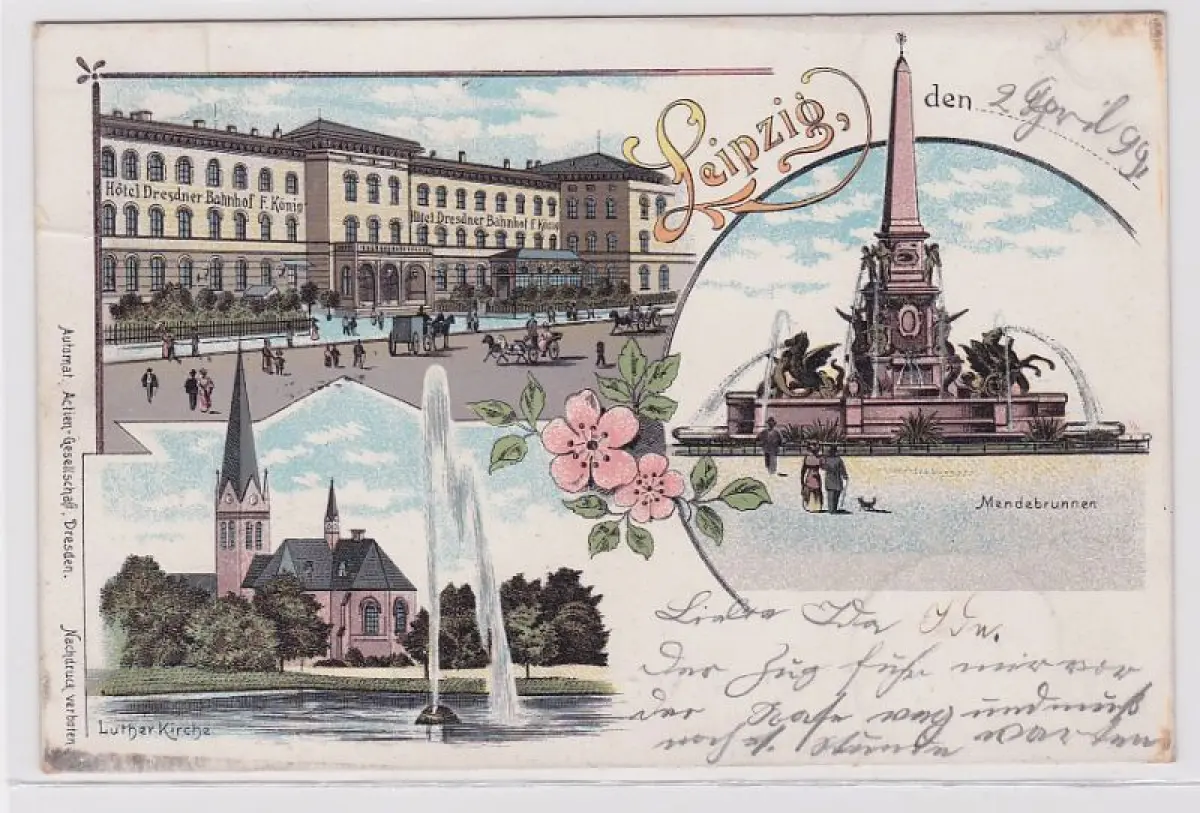 Leipzig,
den 2 April 99
Hôtel Dresdner Bahnhof F. König
Hôtel Dresdner Bahnhof F. König
Mendebrunnen
Luther Kirche
Automat. Actien-Gesellschaft, Dresden. Nachdruck verboten
Liebe Ida
Der Zug fuhr mir vor
der Nase weg und muß
noch Stunde warten